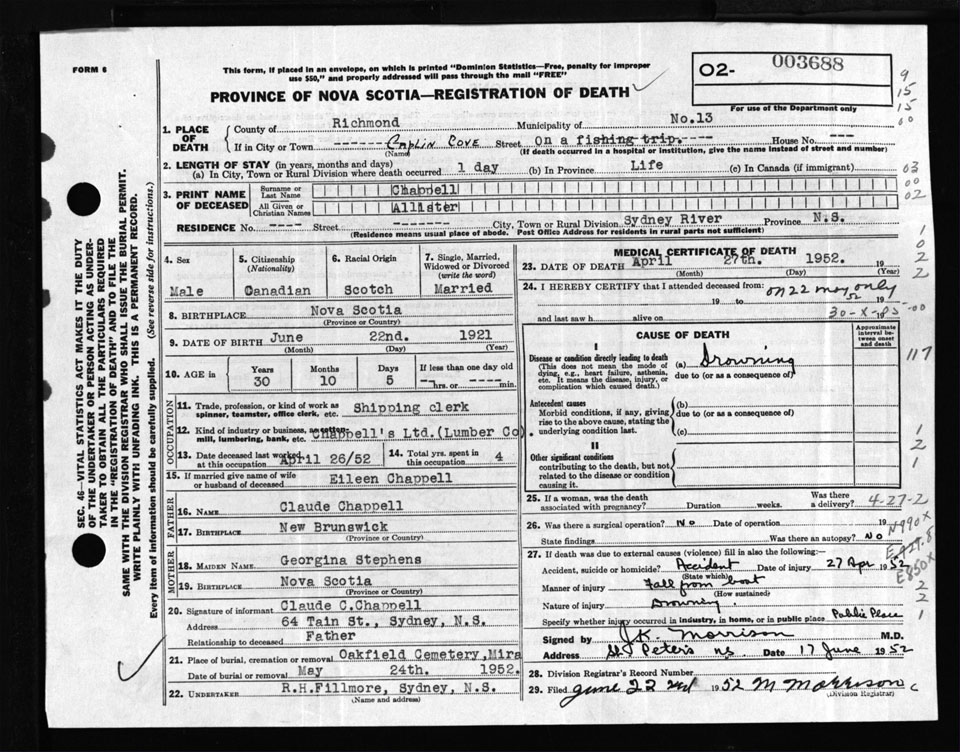 FORM 6
This form, if placed in an envelope, on which is printed "Dominion Statistics—Free, penalty for improper
use $50," and properly addressed will pass through the mail "FREE"
PROVINCE OF NOVA SCOTIA—REGISTRATION OF DEATH
02- 003688
For use of the Department only
9
15
15
00
1. PLACE OF DEATH
County of Richmond Municipality of No.13
If in City or Town ------- Caplin Cove Street On a fishing trip House No. ---
(Name) (If death occurred in a hospital or institution, give the name instead of street and number)
2. LENGTH OF STAY (in years, months and days)
(a) In City, Town or Rural Division where death occurred 1 day (b) In Province Life (c) In Canada (if immigrant) 03
3. PRINT NAME OF DECEASED
Surname or Last Name Chappell 00
All Given or Christian Names Allister 02
RESIDENCE No. ---- Street ----- City, Town or Rural Division Sydney River Province N.S.
(Residence means usual place of abode. Post Office Address for residents in rural parts not sufficient)
1
0
2
2
SEC. 46—VITAL STATISTICS ACT MAKES IT THE DUTY
OF THE UNDERTAKER OR PERSON ACTING AS UNDER-
TAKER TO OBTAIN ALL THE PARTICULARS REQUIRED
IN THE "REGISTRATION OF DEATH" AND TO FILE THE
SAME WITH THE DIVISION REGISTRAR WHO SHALL ISSUE THE BURIAL PERMIT.
WRITE PLAINLY WITH UNFADING INK. THIS IS A PERMANENT RECORD.
Every item of information should be carefully supplied. (See reverse side for instructions.)
4. Sex Male
5. Citizenship (Nationality) Canadian
6. Racial Origin Scotch
7. Single, Married, Widowed or Divorced (write the word) Married
8. BIRTHPLACE Nova Scotia
(Province or Country)
9. DATE OF BIRTH June 22nd. 1921
(Month) (Day) (Year)
10. AGE in Years 30 Months 10 Days 5 If less than one day old --hrs. or ---- min.
OCCUPATION
11. Trade, profession, or kind of work as spinner, teamster, office clerk, etc. Shipping clerk
12. Kind of industry or business, as cotton-mill, lumbering, bank, etc. Chappell's Ltd.(Lumber Co)
13. Date deceased last worked at this occupation April 26/52
14. Total yrs. spent in this occupation 4
15. If married give name of wife or husband of deceased Eileen Chappell
FATHER
16. NAME Claude Chappell
17. BIRTHPLACE New Brunswick
(Province or Country)
MOTHER
18. MAIDEN NAME Georgina Stephens
19. BIRTHPLACE Nova Scotia
(Province or Country)
20. Signature of informant Claude C.Chappell
Address 64 Tain St., Sydney, N.S.
Relationship to deceased Father
21. Place of burial, cremation or removal Oakfield Cemetery,Mira
Date of burial or removal May 24th. 1952.
22. UNDERTAKER R.H.Fillmore, Sydney, N.S.
(Name and Address)
MEDICAL CERTIFICATE OF DEATH
23. DATE OF DEATH April 27th. 1952. 19
(Month) (Day) (Year)
24. I HEREBY CERTIFY that I attended deceased from: on 22 may only
19 to 52 19
and last saw h alive on 30-X-
-00
CAUSE OF DEATH
Approximate interval between onset and death
I
Disease or condition directly leading to death
(This does not mean the mode of dying, e.g., heart failure, asthenia, etc. It means the disease, injury, or complication which caused death.)
(a) Drowning
due to (or as a consequence of)
117
Antecedent causes
Morbid conditions, if any, giving rise to the above cause, stating the underlying condition last.
(b)
due to (or as a consequence of)
(c)
II
Other significant conditions
contributing to the death, but not related to the disease or condition causing it.
1
2
1
25. If a woman, was the death associated with pregnancy? Duration weeks. Was there a delivery? 4-27-2
26. Was there a surgical operation? No Date of operation 19 N990X
State findings Was there an autopsy? No
27. If death was due to external causes (violence) fill in also the following:—
Accident, suicide or homicide? Accident Date of injury 27 Apr 1952
(State which)
E850X
Manner of injury Fall from boat
(How sustained)
Nature of injury Drowning.
Specify whether injury occurred in industry, in home, or in public place Public Place
2
2
1
Signed by J.K. Morrison M.D.
Address St Peter's N.S. Date 17 June 1952
28. Division Registrar's Record Number
29. Filed June 22nd 1952 M Morrison
(Division Registrar)
c